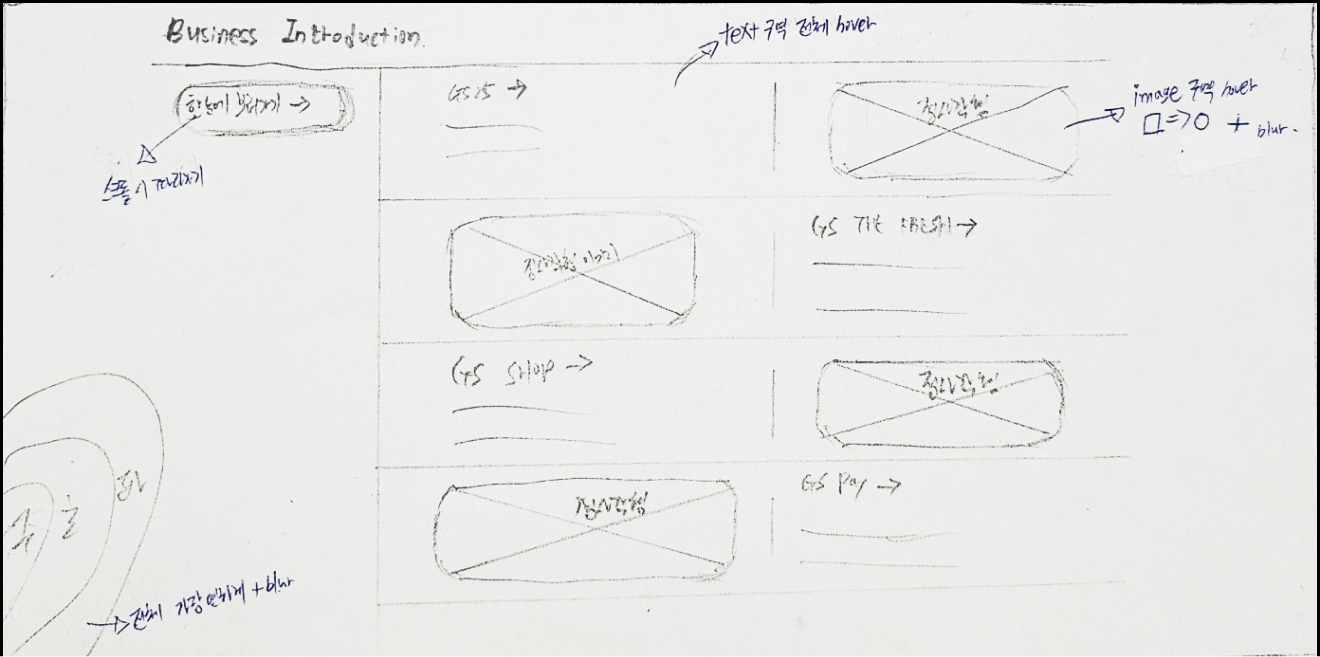 Business Introduction
text 구역 전체 hover
한눈에 보러가기 →
GS25 →
직사각형
image 구역 hover
□ => ○ + blur.
직사각형 이미지
GS THE FRESH →
GS SHOP →
직사각형
직사각형
GS Pay →
전체 가장 연하게 + blur